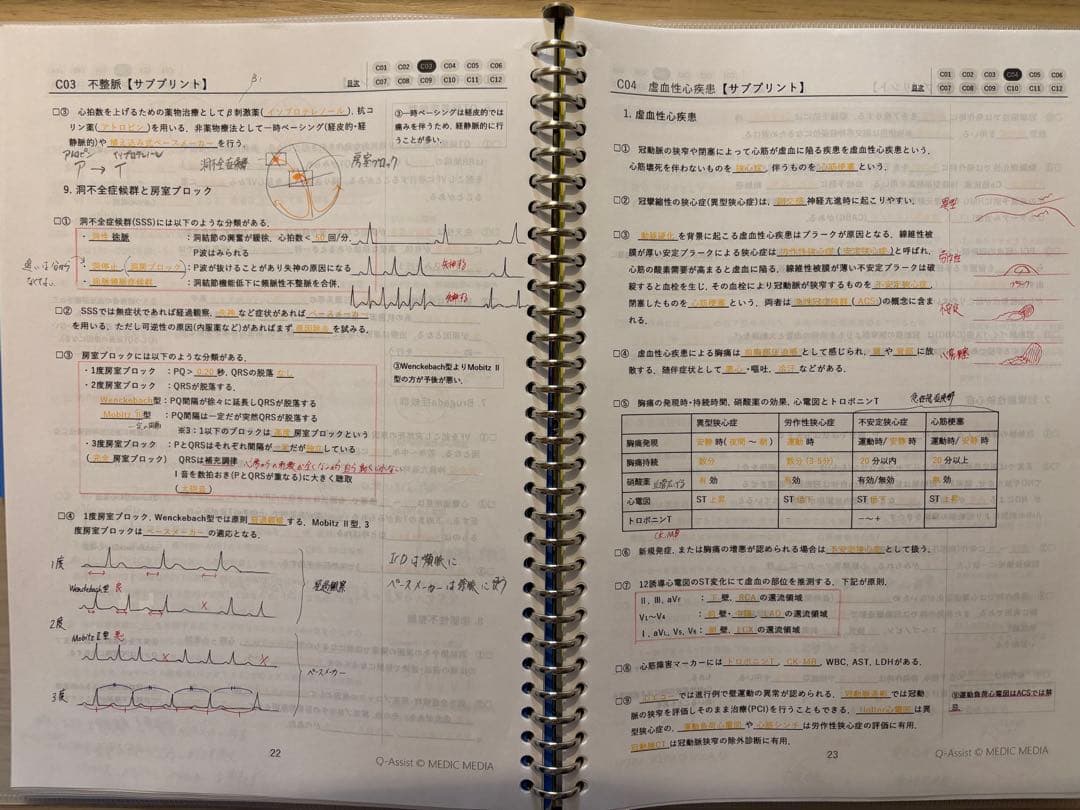 C03 不整脈【サブプリント】
目次
C01 C02 C03 C04 C05 C06
C07 C08 C09 C10 C11 C12
□③ 心拍数を上げるための薬物治療としてβ刺激薬(イソプロテレノール),抗コ
リン薬(アトロピン)を用いる.非薬物療法として一時ペーシング(経皮的・経
静脈的)や植え込み式ペースメーカーを行う.
③一時ペーシングは経皮的では
痛みを伴うため,経静脈的に行
うことが多い.
アトロピン イソプロテレノール
P → T
洞不全症候群
房室ブロック
9. 洞不全症候群と房室ブロック
□① 洞不全症候群(SSS)には以下のような分類がある.
・洞性徐脈 :洞結節の興奮が緩徐.心拍数<50回/分.
P波はみられる
・洞停止(洞房ブロック):P波が抜けることがあり失神の原因になる
・徐脈頻脈症候群 :洞結節機能低下に頻脈性不整脈を合併.
失神する
失神する
□② SSSでは無症状であれば経過観察,失神など症状があればペースメーカー
を用いる.ただし可逆性の原因(内服薬など)があればまず原因除去を試みる.
□③ 房室ブロックには以下のような分類がある.
・1度房室ブロック :PQ>0.20秒,QRSの脱落なし
・2度房室ブロック :QRSが脱落する.
Wenckebach型:PQ間隔が徐々に延長しQRSが脱落する
Mobitz Ⅱ型 :PQ間隔は一定だが突然QRSが脱落する
※3:1以下のブロックは高度房室ブロックという
・3度房室ブロック :PとQRSはそれぞれ間隔が一定だが独立している
(完全房室ブロック) QRSは補充調律
Ⅰ音を数拍おき(PとQRSが重なる)に大きく聴取
(大砲音)
③Wenckebach型よりMobitz Ⅱ
型の方が予後が悪い.
□④ 1度房室ブロック,Wenckebach型では原則経過観察する.Mobitz Ⅱ型,3
度房室ブロックはペースメーカーの適応となる.
1度
Wenckebach型 良
経過観察
2度
Mobitz Ⅱ型 悪
ペースメーカー
3度
ICDは頻脈に
ペースメーカーは徐脈に使う
22
Q-Assist © MEDIC MEDIA
C04 虚血性心疾患【サブプリント】
目次
C01 C02 C03 C04 C05 C06
C07 C08 C09 C10 C11 C12
1. 虚血性心疾患
□① 冠動脈の狭窄や閉塞によって心筋が虚血に陥る疾患を虚血性心疾患という.
心筋壊死を伴わないものを狭心症,伴うものを心筋梗塞という.
□② 冠攣縮性の狭心症(異型狭心症)は,副交感神経亢進時に起こりやすい.
異型
□③ 動脈硬化を背景に起こる虚血性心疾患はプラークが原因となる.線維性被
膜が厚い安定プラークによる狭心症は労作性狭心症(安定狭心症)と呼ばれ,
心筋の酸素需要が高まると虚血に陥る.線維性被膜が薄い不安定プラークは破
綻すると血栓を生じ,その血栓により冠動脈が狭窄するものを不安定狭心症,
閉塞したものを心筋梗塞という.両者は急性冠症候群(ACS)の概念に含ま
れる.
労作性
プラーク
不安定
心筋梗塞
□④ 虚血性心疾患による胸痛は前胸部圧迫感として感じられ,肩や背部に放
散する.随伴症状として悪心・嘔吐,冷汗などがある.
□⑤ 胸痛の発現時・持続時間,硝酸薬の効果,心電図とトロポニンT
急性冠症候群
異型狭心症 労作性狭心症 不安定狭心症 心筋梗塞
胸痛発現 安静時(夜間〜朝) 運動時 運動時/安静時 運動時/安静時
胸痛持続 数分 数分(3-5分) 20分以内 20分以上
硝酸薬 有効 有効 有効/無効 無効
心電図 ST上昇 ST低下 ST低下 ST上昇
トロポニンT −〜+ +
CK-MB
□⑥ 新規発症,または胸痛の増悪が認められる場合は不安定狭心症として扱う.
□⑦ 12誘導心電図のST変化にて虚血の部位を推測する.下記が原則.
Ⅱ,Ⅲ,aVF :下壁,RCAの還流領域
V₁〜V₄ :前壁・中隔,LADの還流領域
Ⅰ,aVL,V₅,V₆:側壁,LCXの還流領域
□⑧ 心筋障害マーカーにはトロポニンT,CK-MB,WBC,AST,LDHがある.
□⑨ 心エコーでは進行例で壁運動の異常が認められる.冠動脈造影では冠動
脈の狭窄を評価しそのまま治療(PCI)を行うこともできる.Holter心電図は異
型狭心症の,運動負荷心電図や心筋シンチは労作性狭心症の評価に有用.
冠動脈CTは冠動脈狭窄の除外診断に有用.
⑨運動負荷心電図はACSでは禁
忌
23
Q-Assist © MEDIC MEDIA